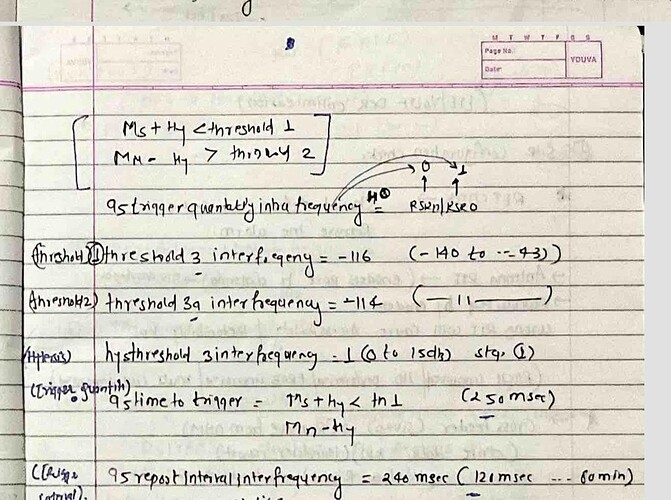 M T W T F S S
Page No.:
Date:
YOUVA
Ms + Hy < threshold 1
Mn - Hy > 2
0 1
a5 trigger quantity intra frequency =
RSRP/RSRQ
(threshold 1) threshold 3 interfreqency = -116 (-140 to -43))
(threshold 2) threshold 3a interfrequency = -114 (— 11 —)
hysthreshold 3 interfrequency = 1 (0 to 15db) step (1)
(Trigger quantity)
a5 time to trigger = Ms + Hy < th 1 (250 msec)
Mn - Hy
a5 report interval interfrequency = 240 msec (120 msec --- 60 min)